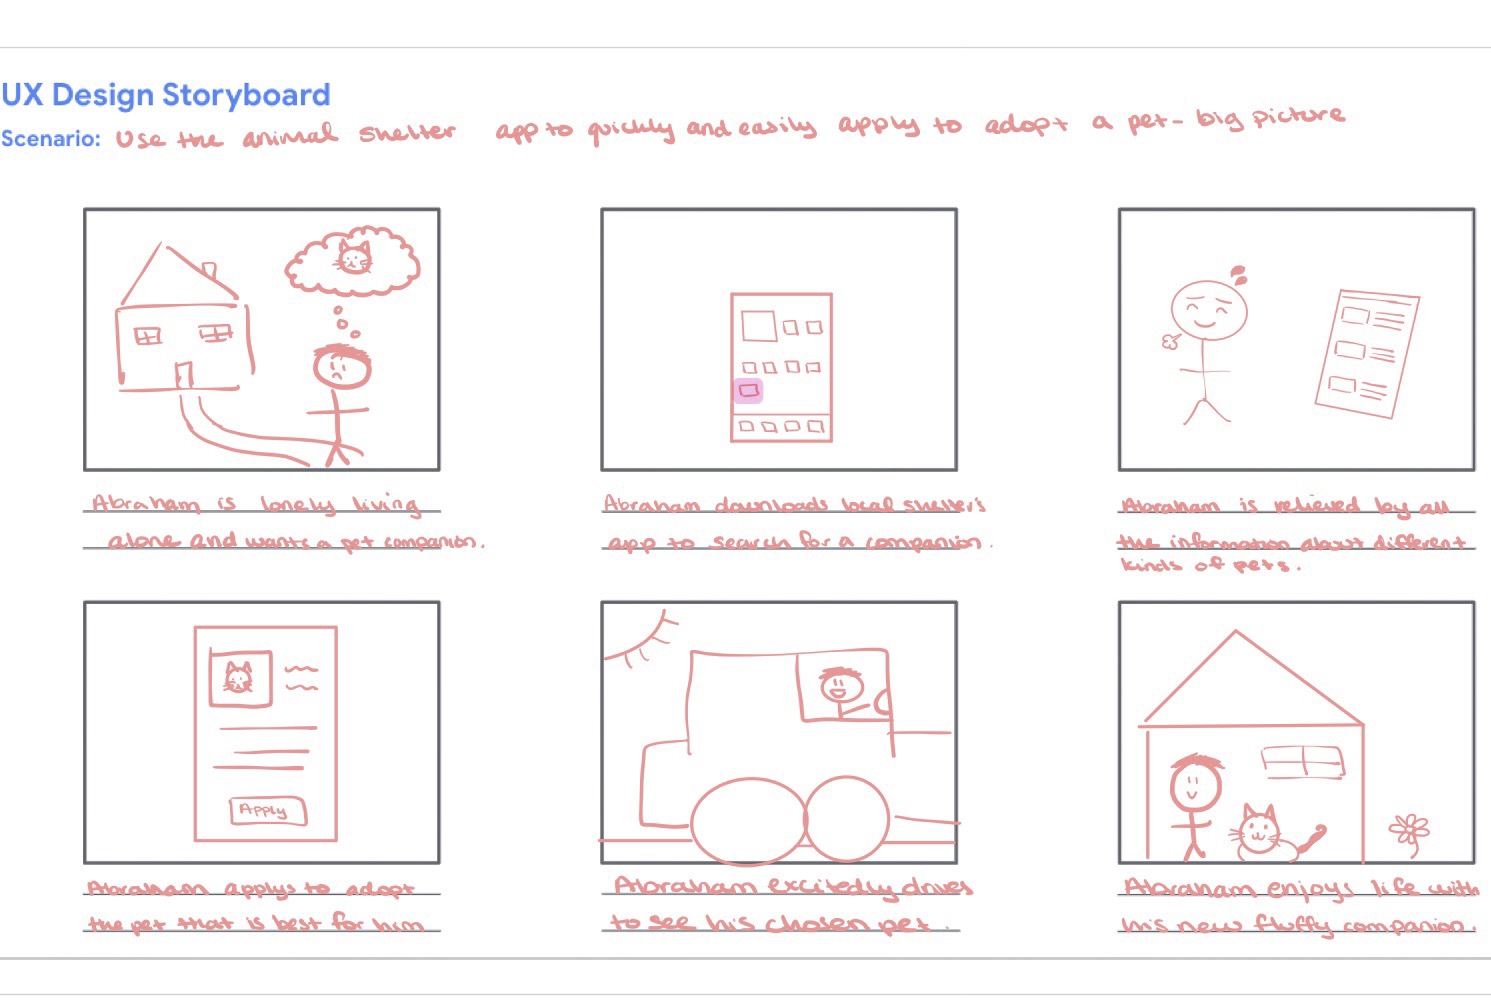 UX Design Storyboard
Scenario: Use the animal shelter app to quickly and easily apply to adopt a pet- big picture
Abraham is lonely living
alone and wants a pet companion.
Abraham downloads local shelter's
app to search for a companion.
Abraham is relieved by all
the information about different
kinds of pets.
Apply
Abraham applys to adopt
the pet that is best for him
Abraham excitedly drives
to see his chosen pet.
Abraham enjoys life with
his new fluffy companion.